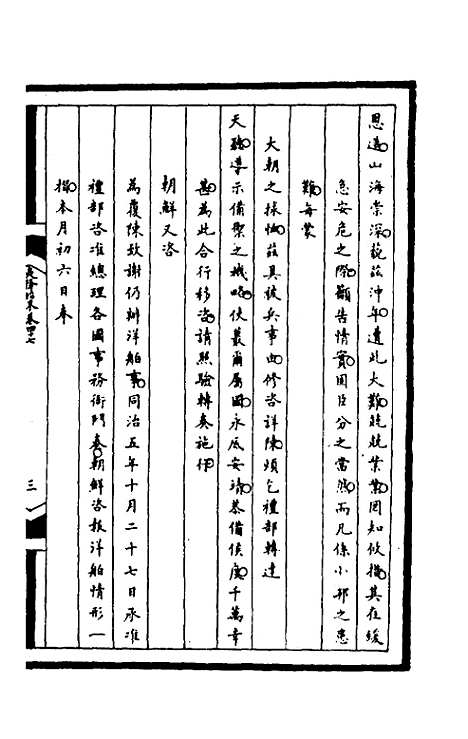 恩遠山海崇深藐茲沖年遭此大難兢兢業業罔知攸措其在緩
急安危之際籲告情實固臣分之當然而凡係小邦之患
難每蒙
大朝之拯恤茲具被兵事由修咨詳陳煩乞禮部轉達
天聽導示備禦之機略使蕞爾屬國永底安靖恭備侯度千萬幸
甚為此合行移咨請照驗轉奏施行
朝鮮又咨
為覆陳致謝仍辦洋舶事同治五年十月二十七日承准
禮部咨准總理各國事務衙門奏朝鮮咨報洋舶情形一
摺本月初六日奉
夷務始末卷四十七
三